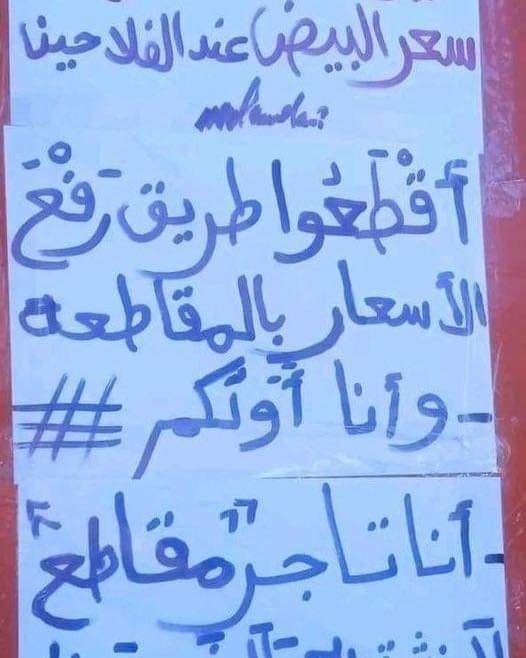 سعر البيض عند الفلاحينا
أقْطَعُوا طريق رَفْعَ
الأسعار بالمقاطعة
- وأنا أوّلكم #
- أنا تاجر "مقاطع"